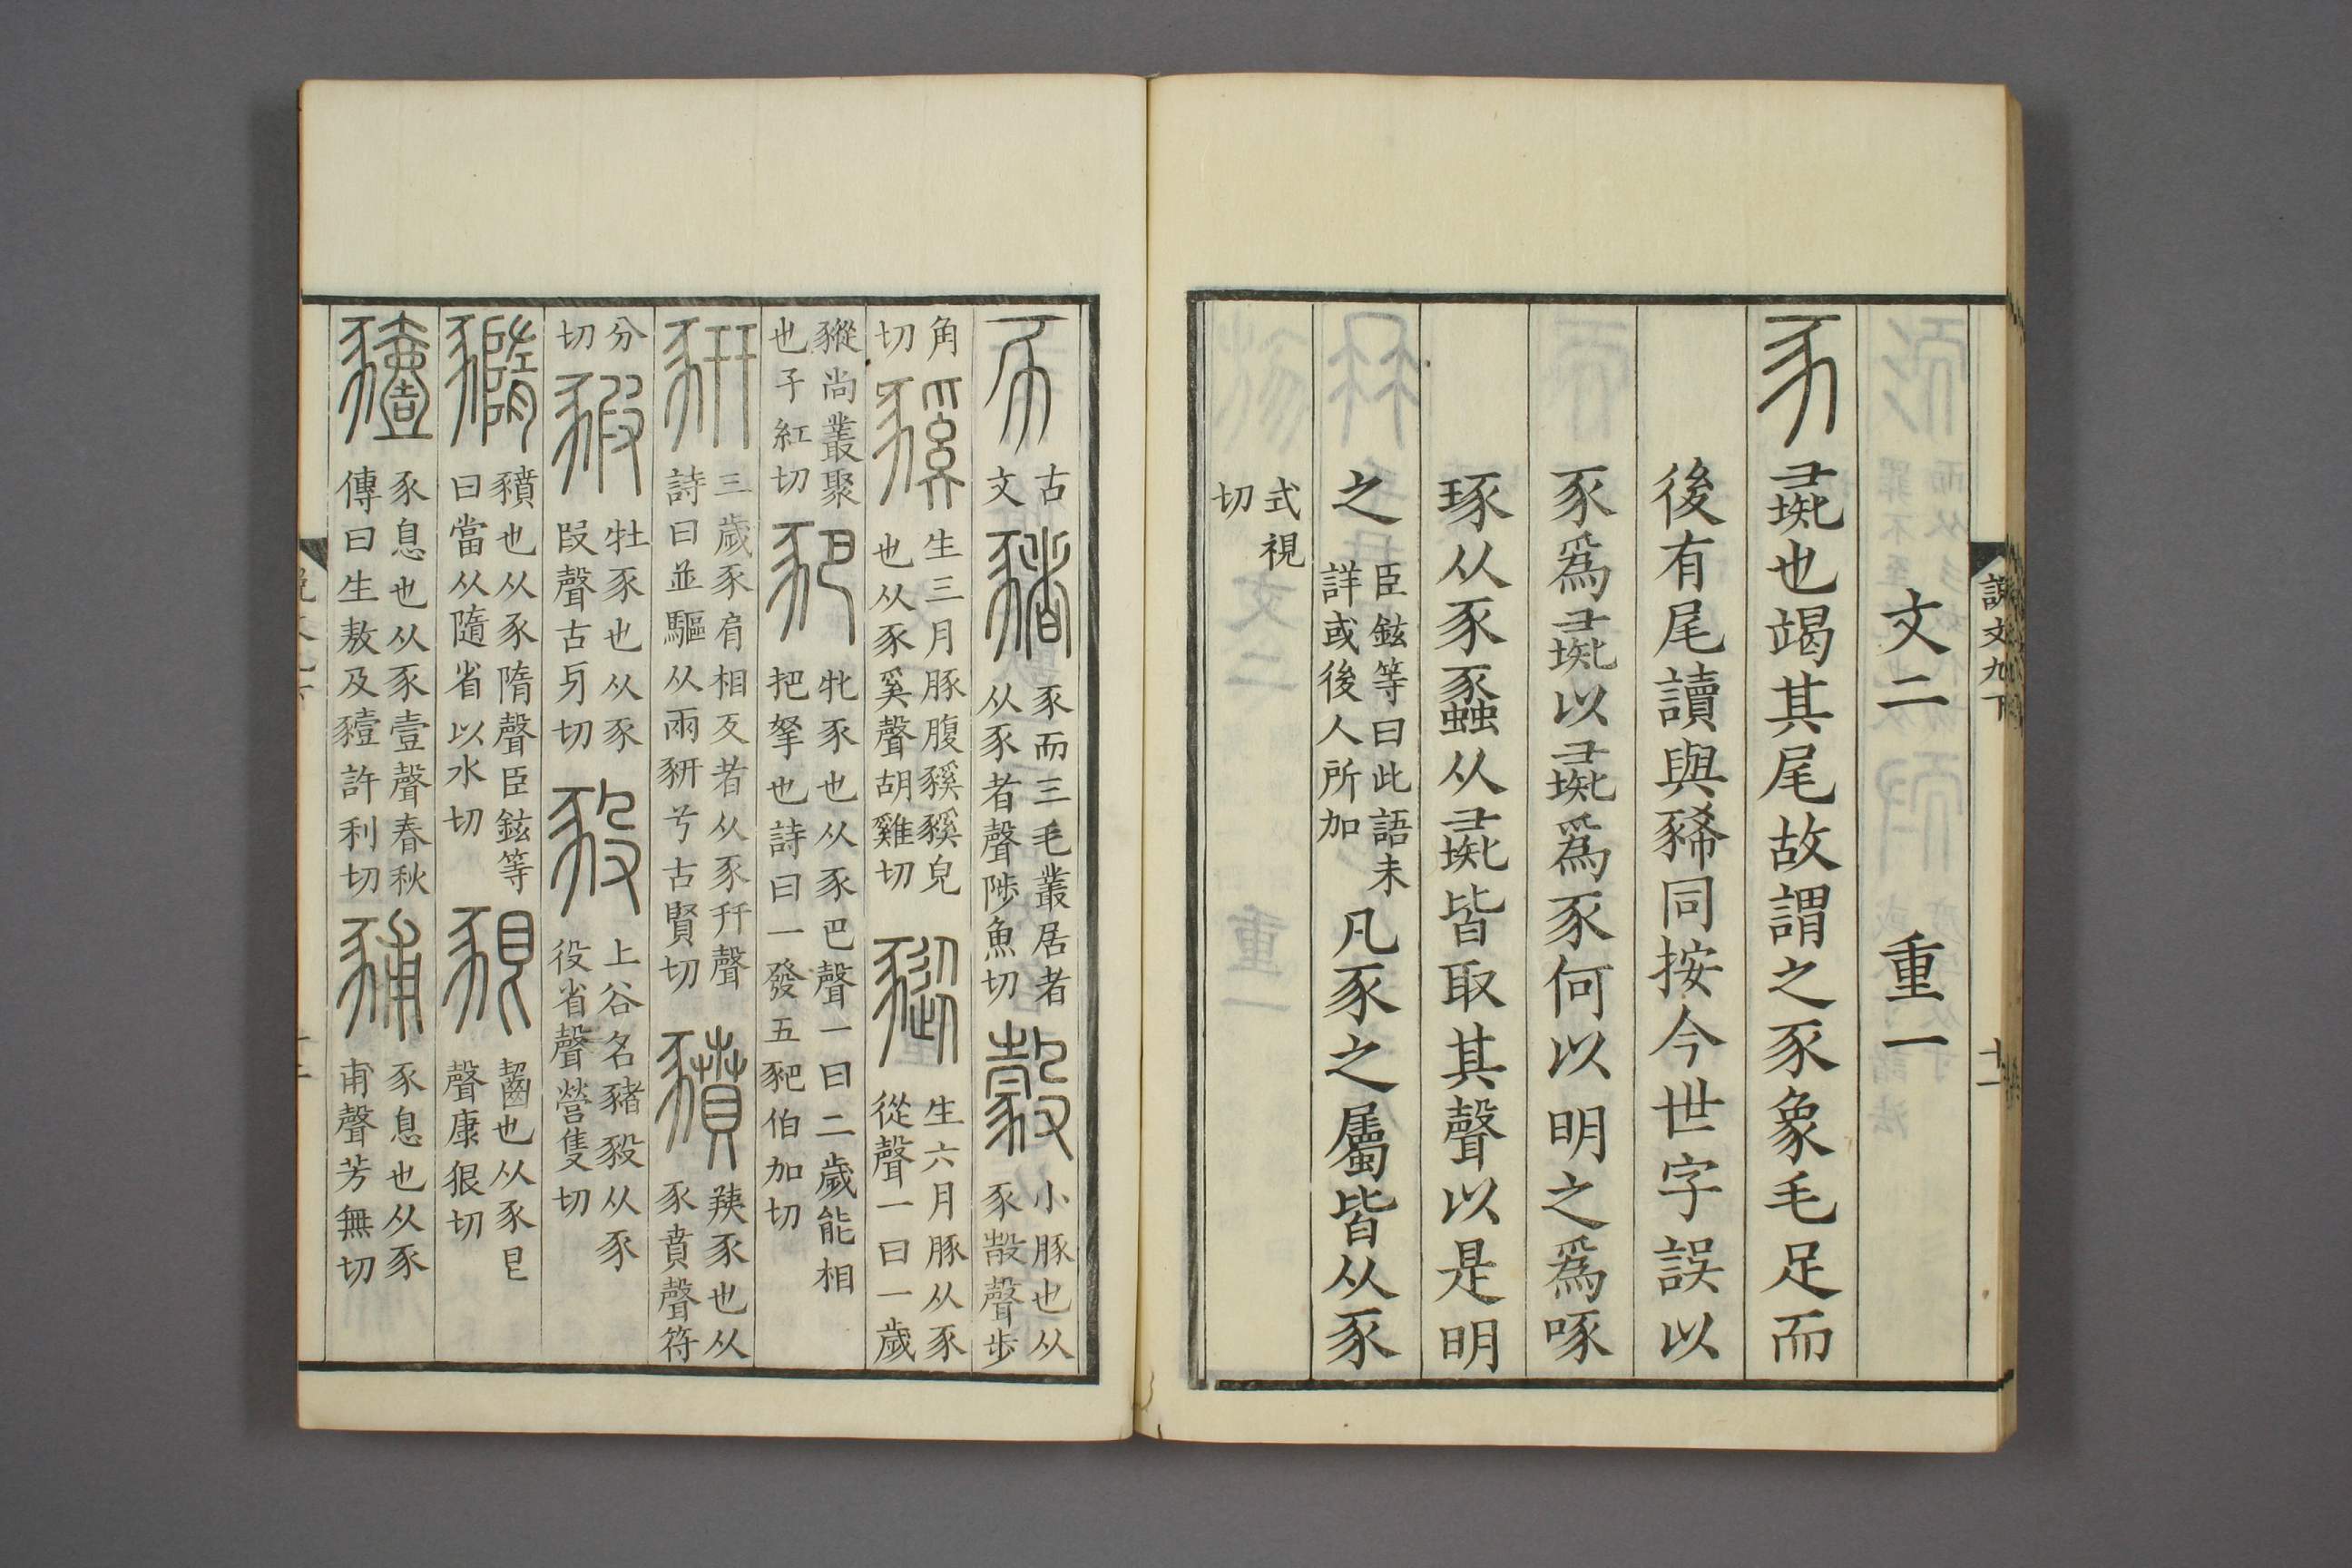 說文九下 十一
文二 重一
豕 彘也竭其尾故謂之豕象毛足而
後有尾讀與豨同按今世字誤以
豕爲彘以彘爲豕何以明之爲啄
琢从豕蟸从彘皆取其聲以是明
之臣鉉等曰此語未詳或後人所加凡豕之屬皆从豕
式視切
古文 豬 豕而三毛叢居者从豕者聲陟魚切 豰 小豚也从豕㱿聲步
角切 豯 生三月豚腹豯豯皃也从豕奚聲胡雞切 豵 生六月豚从豕從聲一曰一歲
豵尚叢聚也子紅切 豝 牝豕也从豕巴聲一曰二歲能相把拏也詩曰一發五豝伯加切
豣 三歲豕肩相及者从豕幵聲詩曰並驅从兩豣兮古賢切 豶 羠豕也从豕賁聲符
分切 豭 牡豕也从豕叚聲古牙切 豛 上谷名豬豛从豕役省聲營隻切
䝐 豶也从豕隋聲臣鉉等曰當从隨省以水切 豤 齧也从豕皀聲康很切
豷 豕息也从豕壹聲春秋傳曰生敖及豷許利切 豧 豕息也从豕甫聲芳無切